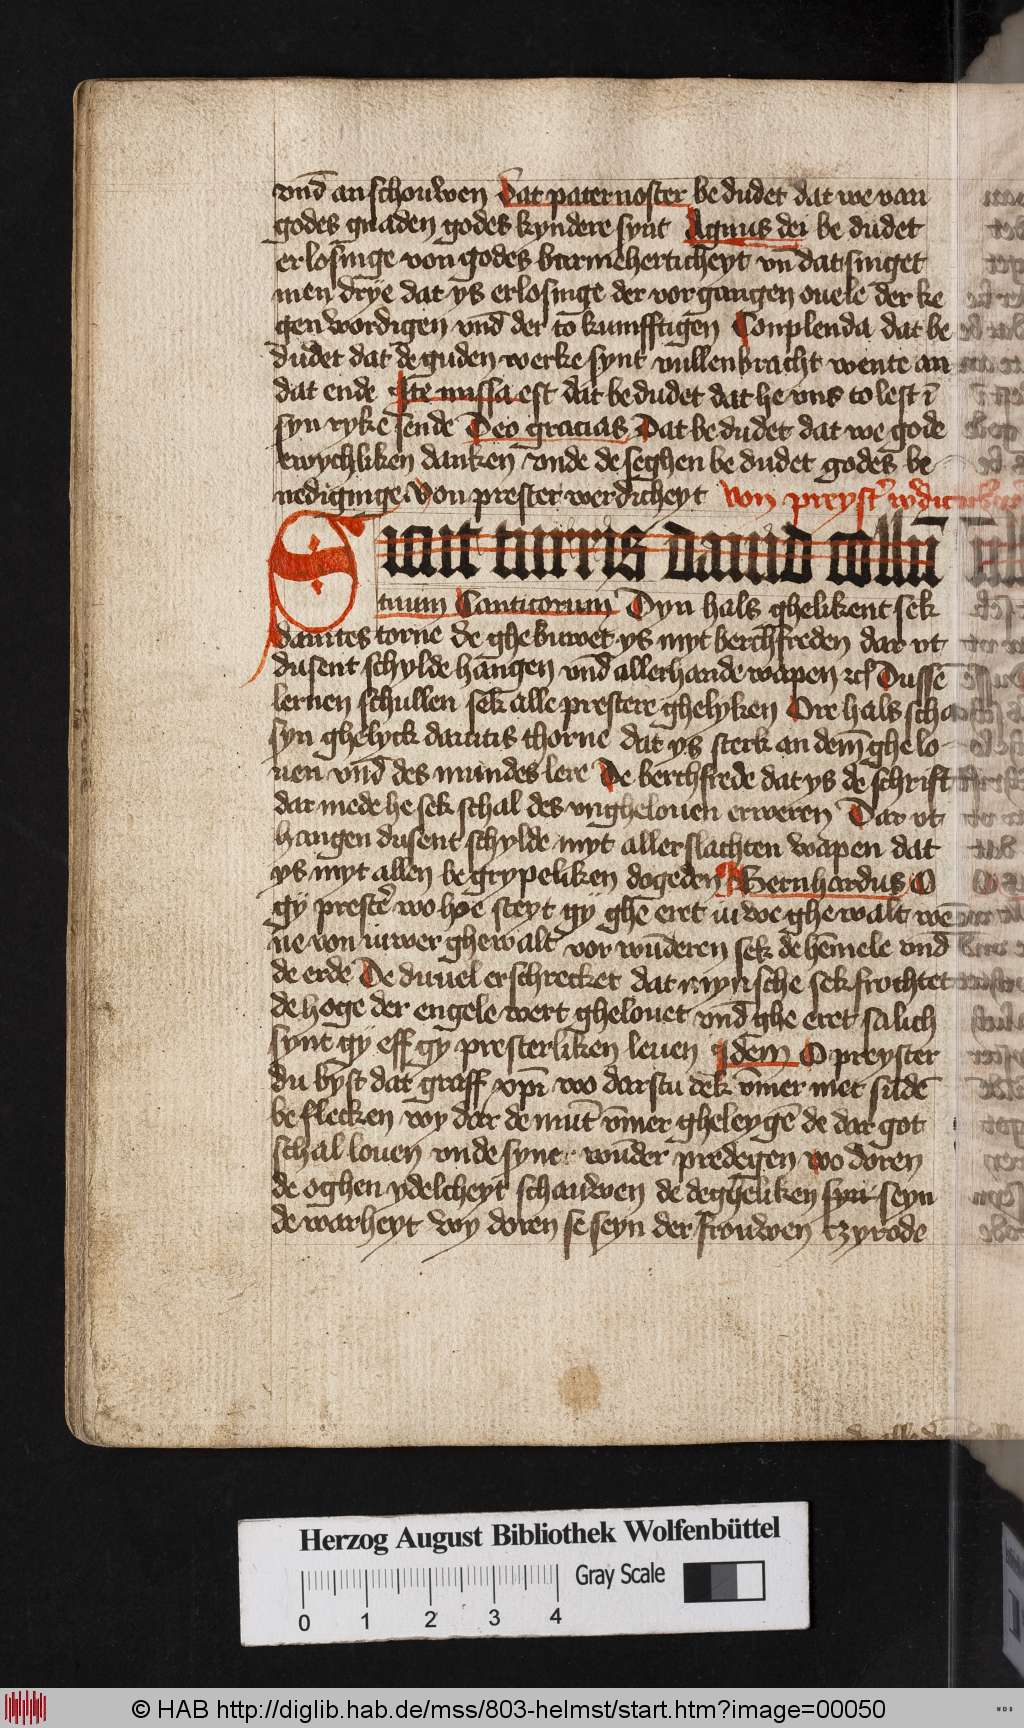 vnd̄ an schouwen Dat pater noster be dudet dat we van
godes gnaden godes kyndere synt Agnus dei be dudet
erlosinge von godes barmeherticheyt vn̄ dat singet
men drye dat ys erlosinge der vorgangen ouele der ke
genwordigen vnd̄ der to kumfftigen Conplenda dat be
dudet dat de guden werke synt vullenbracht wente an
dat ende Ite missa est dat be dudet dat he vns to lest ī
syn ryke sende Deo gracias Dat be dudet dat we gode
ewychliken danken vnde de seghen be dudet godes be-
nediginge Von prester werdicheyt Von preyst'
Sicut turris dauid collū
tuum Canticorum Dyn hals ghelikent sek
dauites torne de ghebuwet ys myt berchfreden dar vt
dusent schylde hangen vnd̄ allerhande wapen Dussē
lernen schullen sek alle prestere ghelyken Ore hals schal
syn ghelyck dauitis thorne dat ys sterk an dem̄ ghe lo-
uen vnd̄ des mundes lere De berchfrede dat ys de schrift
dar mede he sek schal des vnghelouen erweren Dar vt
hangen dusent schylde myt allerslachten wapen dat
ys myt allen be grypeliken dogeden Bernhardus O
gy prestē wo hoe steyt gy ghe eret iuwe ghewalt wē
ne von iuwer ghewalt vor wūderen sek de hēmele vnd̄
de erde De duuel erschrecket dat mynsche sek fruchtet
de hoge der engele wert ghelouet vnd̄ ghe eret salich
synt gy eff gy presterliken leuen Idem O preyster
du byst dat graff xpī wo darstu dek v̄mer met sūdē
be flecken wy dar de mūt v̄mer gheleygē de dar got
schal louen vnde syne wūder predegen wo doren
de oghen ydelcheyt schauwen de degheliken syn seyn
de warheyt wy doren se seyn der frouwen tzyrode
Herzog August Bibliothek Wolfenbüttel
Gray Scale
0 1 2 3 4
© HAB http://diglib.hab.de/mss/803-helmst/start.htm?image=00050